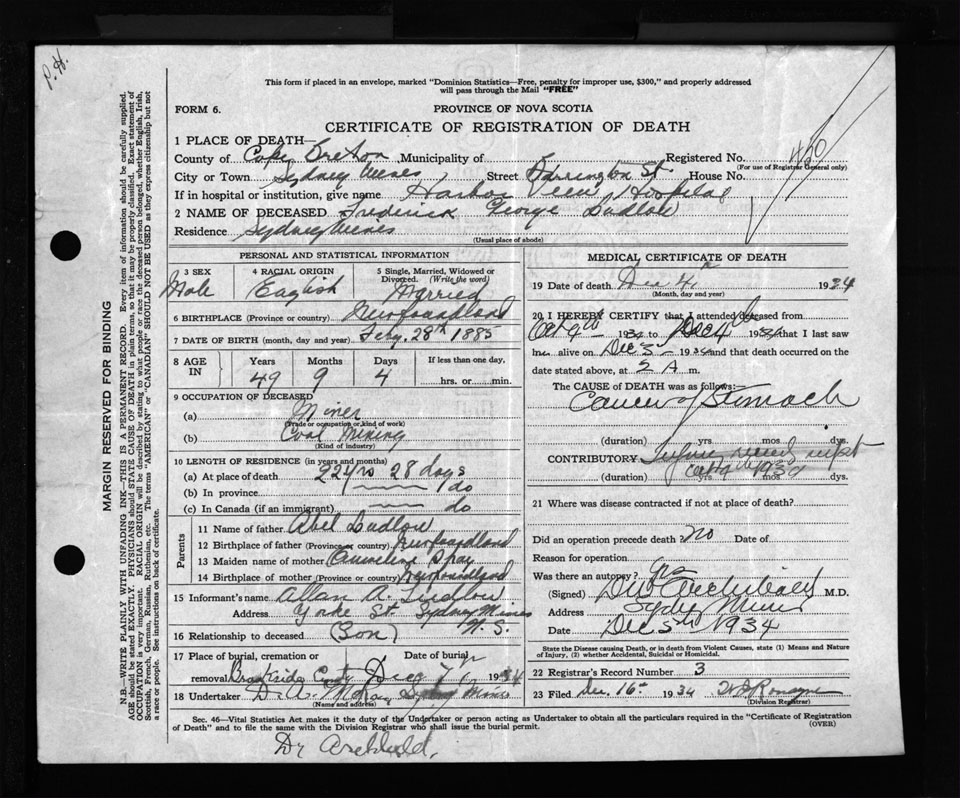 P. H.
This form if placed in an envelope, marked "Dominion Statistics—Free, penalty for improper use, $300," and properly addressed
will pass through the Mail "FREE"
FORM 6.
PROVINCE OF NOVA SCOTIA
CERTIFICATE OF REGISTRATION OF DEATH
1 PLACE OF DEATH—
County of Cape Breton Municipality of Registered No.
(For use of Registrar General only)
City or Town Sydney Mines Street Barrington St. House No.
If in hospital or institution, give name Harbor View Hospital
2 NAME OF DECEASED Frederick George Ludlow
Residence Sydney Mines
(Usual place of abode)
MARGIN RESERVED FOR BINDING
N.B.—WRITE PLAINLY WITH UNFADING INK—THIS IS A PERMANENT RECORD. Every item of information should be carefully supplied.
AGE should be stated EXACTLY. PHYSICIANS should STATE CAUSE OF DEATH in plain terms, so that it may be properly classified. Exact statement of
OCCUPATION is very important. RACIAL ORIGIN will be described by stating to what people or race the deceased person belonged, whether English, Irish,
Scottish, French, German, Russian, Ruthenian, etc. The terms "AMERICAN" or "CANADIAN" SHOULD NOT BE USED as they express citizenship but not
a race or people. See instructions on back of certificate.
PERSONAL AND STATISTICAL INFORMATION
3 SEX
Male
4 RACIAL ORIGIN
English
5 Single, Married, Widowed or
Divorced. (Write the word)
Married
6 BIRTHPLACE (Province or country) Newfoundland
7 DATE OF BIRTH (month, day and year) Feby. 28th 1885
8 AGE IN
Years Months Days If less than one day,
49 9 4 hrs. or min.
9 OCCUPATION OF DECEASED
(a) Miner
(Trade or occupation or kind of work)
(b) Coal Mining
(Kind of industry)
10 LENGTH OF RESIDENCE (in years and months)
(a) At place of death 22 yrs 28 days
(b) In province do
(c) In Canada (if an immigrant) do
Parents
11 Name of father Abel Ludlow
12 Birthplace of father (Province or country) Newfoundland
13 Maiden name of mother
14 Birthplace of mother (Province or country) Newfoundland
15 Informant's name Allan A. Ludlow
Address Yorke St. Sydney Mines
N. S.
16 Relationship to deceased (Son)
17 Place of burial, cremation or Date of burial
removal Brookside Dec 7th 1934
18 Undertaker Sydney Mines
(Name and address)
MEDICAL CERTIFICATE OF DEATH
19 Date of death Dec 4th 1934
(Month, day and year)
20 I HEREBY CERTIFY that I attended deceased from
Oct 9th 1934 to Dec 4 1934 that I last saw
h alive on Dec 3 1934 and that death occurred on the
date stated above, at 2 A m.
The CAUSE OF DEATH was as follows:
Cancer of Stomach
(duration) yrs. mos. dys.
CONTRIBUTORY Injury
Oct 9th 1934
(duration) yrs. mos. dys.
21 Where was disease contracted if not at place of death?
Did an operation precede death? No Date of
Reason for operation
Was there an autopsy?
(Signed) Archibald M.D.
Address Sydney Mines
Date Dec 5th 1934
State the Disease causing Death, or in death from Violent Causes, state (1) Means and Nature
of Injury, (2) whether Accidental, Suicidal or Homicidal.
22 Registrar's Record Number 3
23 Filed Dec. 16th 1934
(Division Registrar)
Sec. 46—Vital Statistics Act makes it the duty of the Undertaker or person acting as Undertaker to obtain all the particulars required in the "Certificate of Registration
of Death" and to file the same with the Division Registrar who shall issue the burial permit.
(OVER)
Dr Archibald.